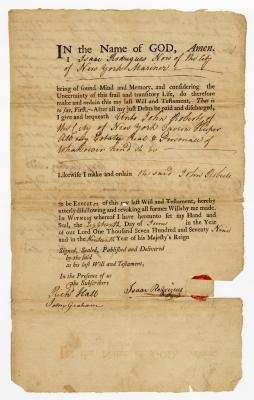 IN the Name of GOD, Amen.
I Isaac Rodrigues Now of the City
of New York Mariner
being of found Mind and Memory, and considering the
Uncertainty of this frail and transitory Life, do therefore
make and ordain this my last Will and Testament, That is
to say, First,—After all my just Debts be paid and discharged,
I give and bequeath Unto John Roberts of
the City of New York Tavern Keeper
all my Estates Real & Personal of
Whatsoever kind
Likewise I make and ordain the said John Roberts
to be Executor of this my last Will and Testament, hereby
utterly disallowing and revoking all former Wills by me made.
In Witness whereof I have hereunto set my Hand and
Seal, the Day of in the Year
of our Lord One Thousand Seven Hundred and Seventy Nine
and in the Nineteenth Year of his Majesty's Reign
Signed, Sealed, Published and Delivered
by the said
as his last Will and Testament,
In the Presence of us
the Subscribers
Richd Hall
Isaac Rodrigues
Graham